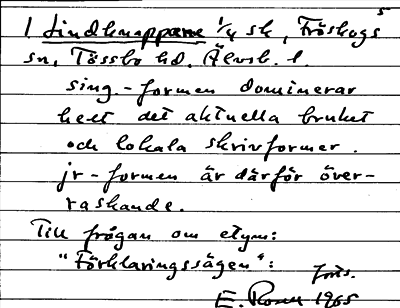 5
1 Lindknapparne 1/4 sk, Fröskogs
sn, Tössbo hd. Älvsb. l.
sing.-formen dominerar
helt det aktuella bruket
och lokala skrivformer.
jr-formen är därför över-
raskande.
Till frågan om etym:
"Förklaringssägen":
forts.
E. Rosell 1965